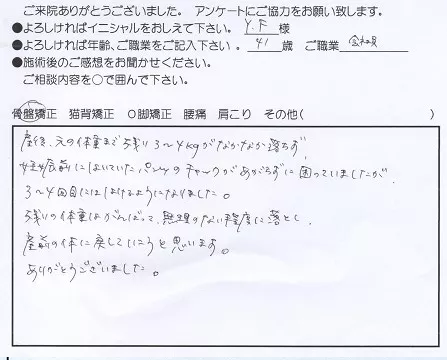 ご来院ありがとうございました。 アンケートにご協力をお願い致します。
●よろしければイニシャルをおしえて下さい。 Y.F 様
●よろしければ年齢、ご職業をご記入下さい。 41 歳 ご職業 会社員
●施術後のご感想をお聞かせください。
ご相談内容を○で囲んで下さい。
骨盤矯正 猫背矯正 O脚矯正 腰痛 肩こり その他( )
産後、元の体重まで残り3〜4kgがなかなか落ちず、
妊娠前にはいていたパンツのチャックがあがらずに困っていましたが、
3〜4回目にははけるようになりました。
残りの体重はがんばって、無理のない程度に落とし、
産前の体に戻していこうと思います。
ありがとうございました。